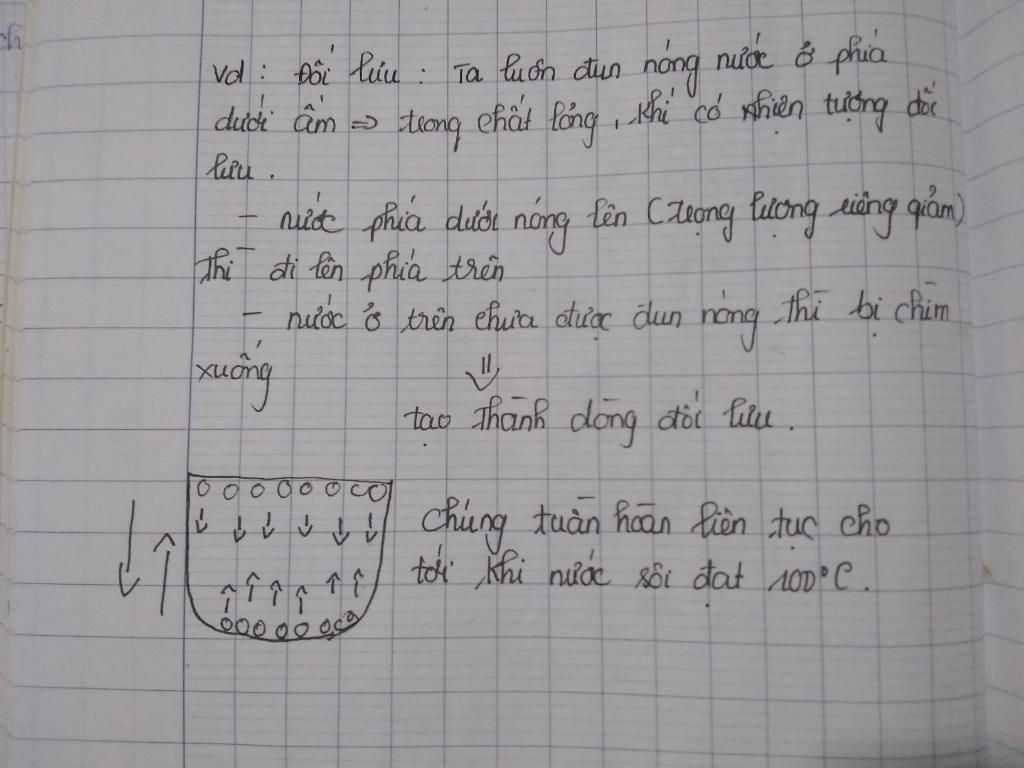 Vd : Đối lưu : Ta luôn đun nóng nước ở phía
dưới ấm => trong chất lỏng, khí có hiện tượng đối
lưu.
- nước phía dưới nóng lên (trọng lượng riêng giảm)
thì đi lên phía trên
- nước ở trên chưa được đun nóng thì bị chìm
xuống
tạo thành dòng đối lưu.
Chúng tuần hoàn liên tục cho
tới khi nước sôi đạt 100°C.